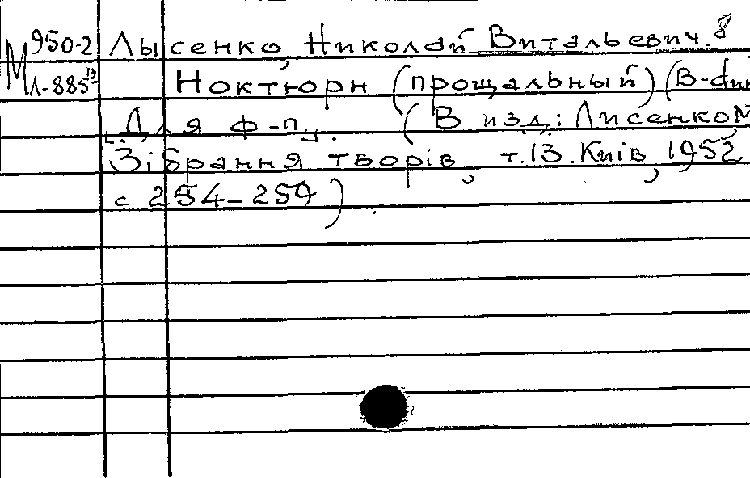 М 950-2 Лысенко, Николай Витальевич. 8
Л-885 13 Ноктюрн (прощальный) (B-dur
Для ф-п. (В изд: Лисенко М
Зібрання творів, т. 13. Київ, 1952
с 254-259)